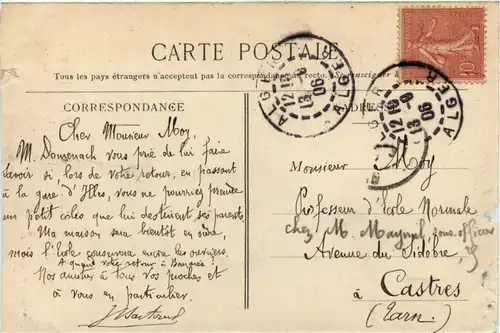 CARTE POSTALE
Tous les pays étrangers n'acceptent pas la correspondance au recto. se renseigner
CORRESPONDANCE
ADRESSE
Cher Monsieur Moy,
M. Domenach vous prie de lui faire
savoir si lors de votre retour, en passant
à la gare d'Illes, vous ne pourriez prendre
un petit colis que lui destinent ses parents.
Ma maison sera bientôt en ordre
mais l'école conservera encore les ouvriers.
A quand votre retour à Bouzaréa?
Nos amitiés à tous vos proches et
à vous en particulier.
Monsieur Moy
Professeur d'Ecole Normale
chez M. Maynial, sous-officier
Avenue du Sidobre,
à Castres
(Tarn)
ALGER
ALGER
12
13 -8
06
ALGER
ALGER
12
13 -8
06
10